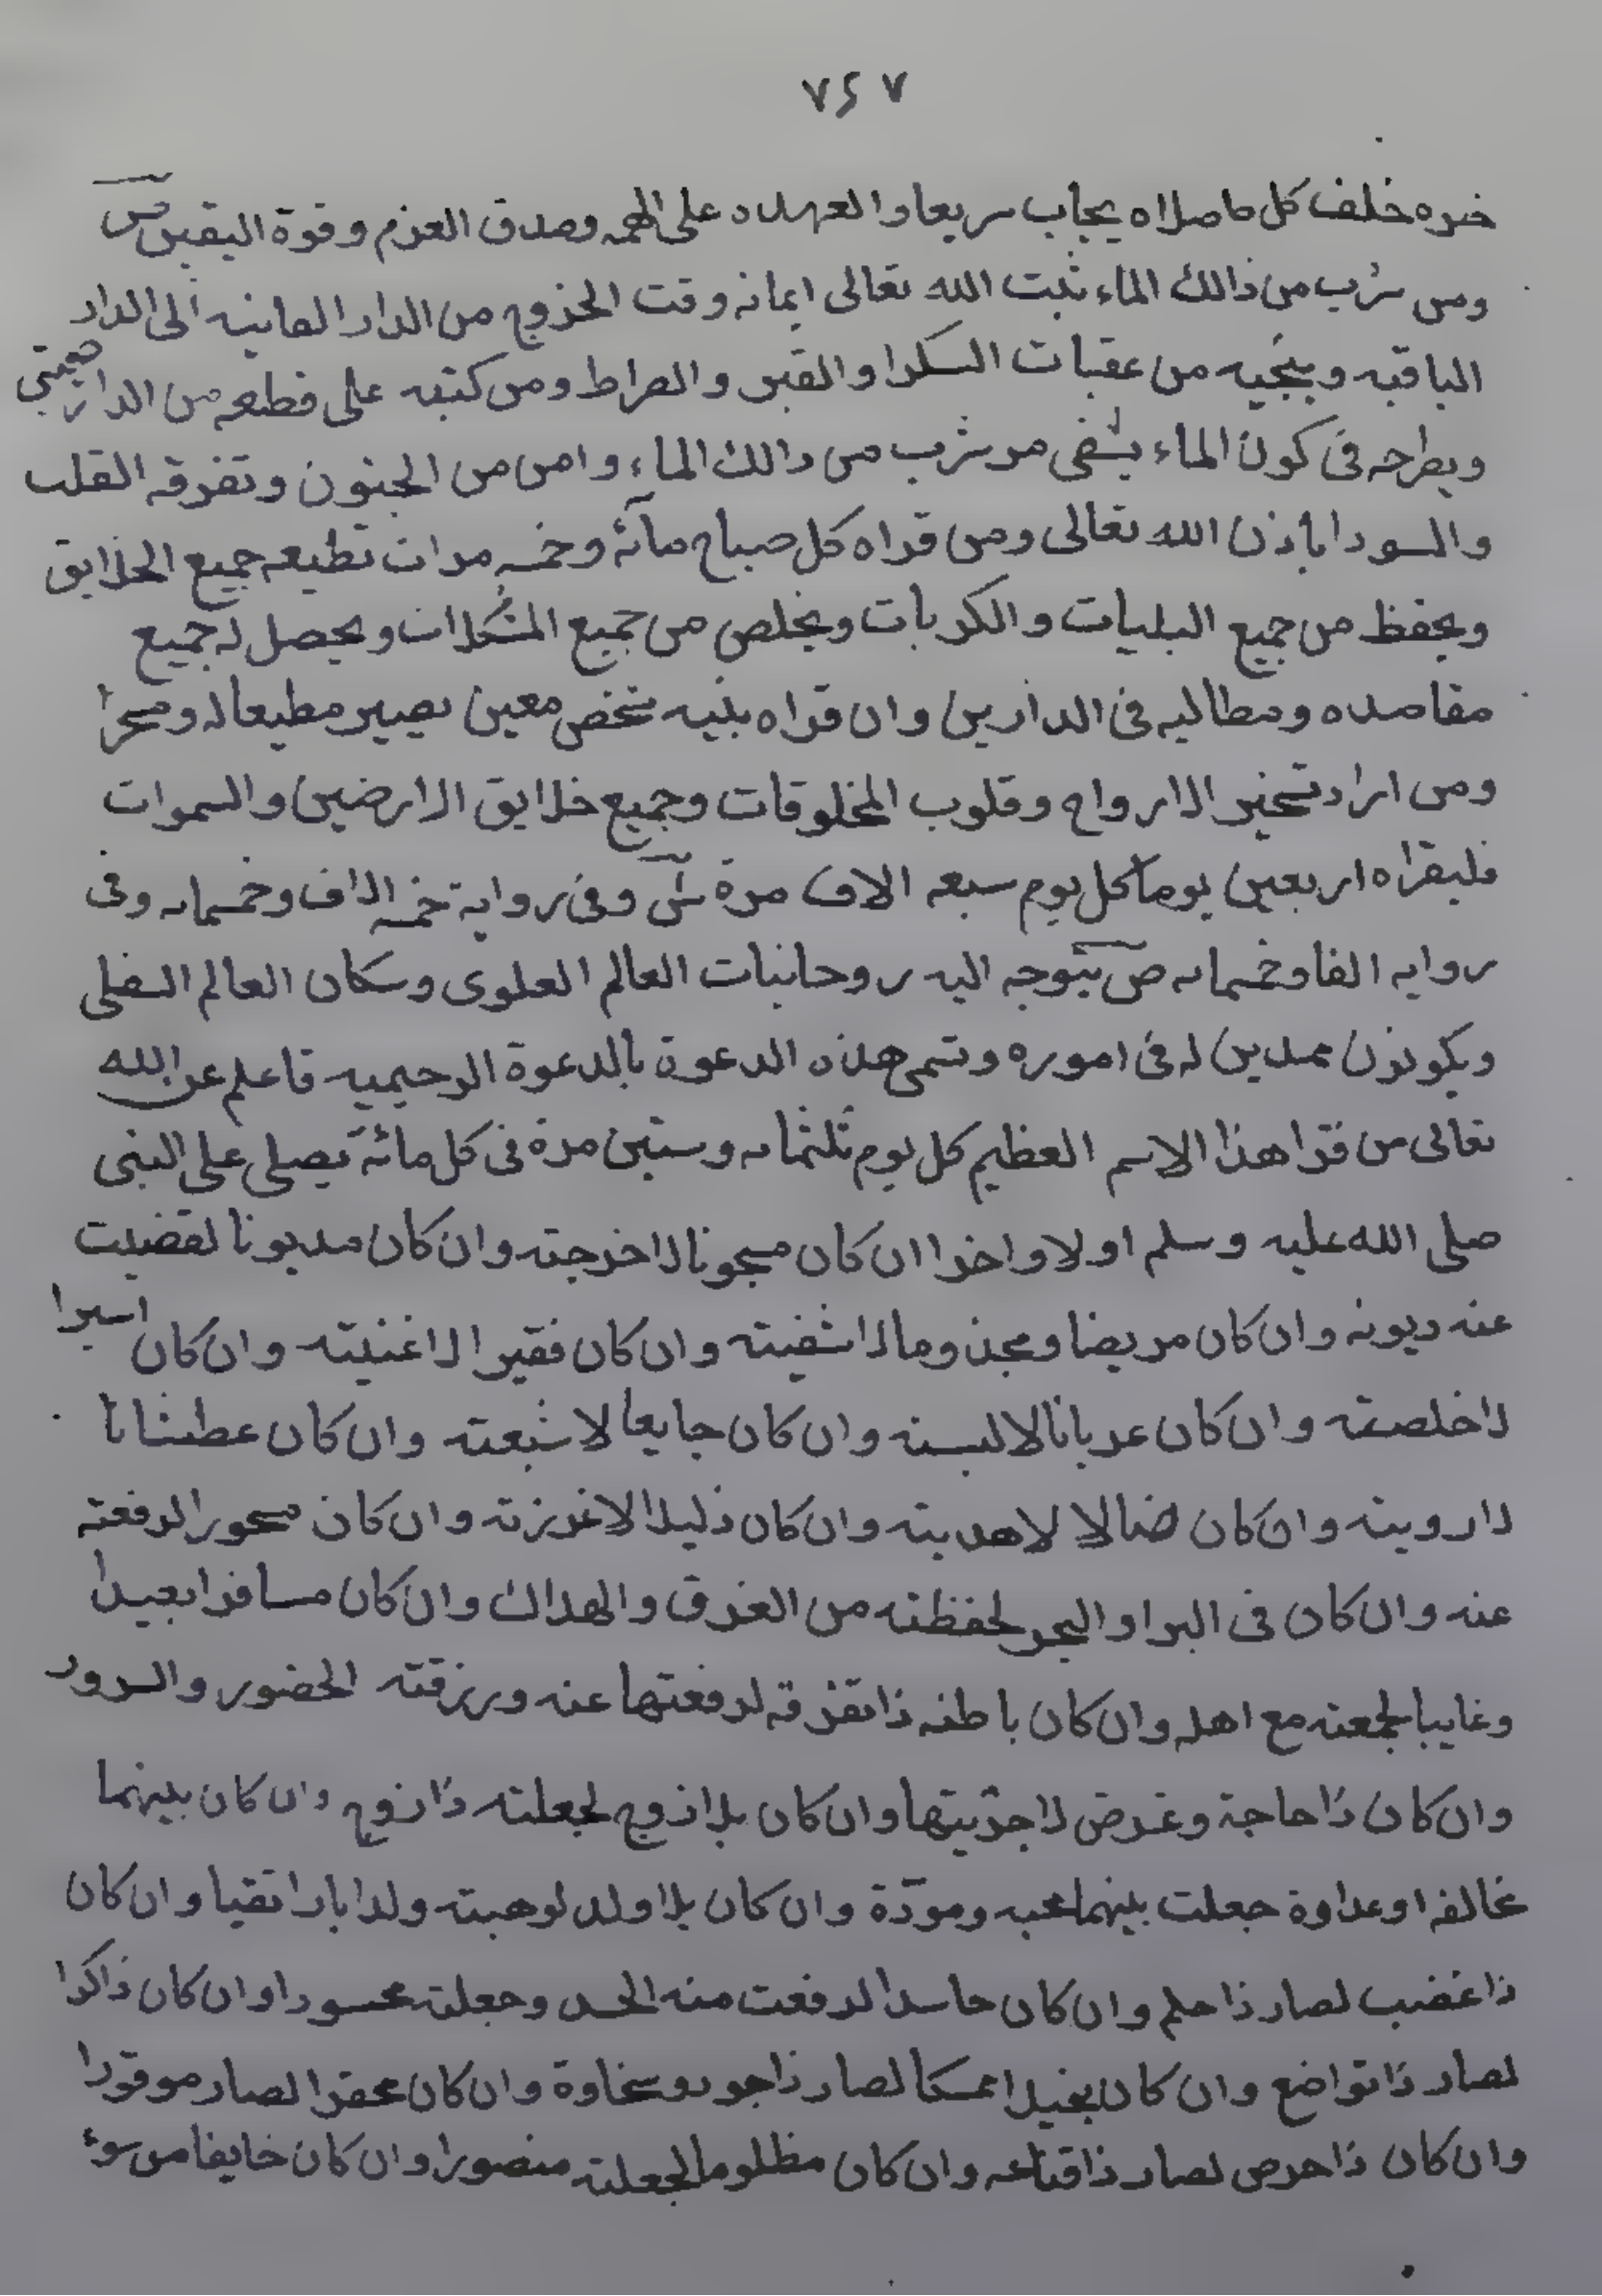 ٧٤٧
خلف كل صلاه يجاب سريعا والعهده على الهمه وصدق العزم وقوة اليقين ص
ومن شرب من ذالك الماء ثبت الله تعالى ايمانه وقت الخروج من الدار الفانيه الى الدار
الباقيه وينجيه من عقبات السكرا والقبر والصراط ومن كتبه على قطعه من الدار چيني
ويطرحه فى كون الماء يشفى من شرب من دالك الماء وامن من الجنون وتفرقه القلب
والسودا باذن الله تعالى ومن قراه كل صباح مائة وخمسه مرات تطيعه جميع الخلايق
ويحفظ من جميع البليات والكربات ويخلص من جميع المشكلات ويحصل له جميع
مقاصده ومطالبه فى الدارين وان قراه بنيه شخص معين يصير مطيعا له ومسخرا
ومن اراد تسخير الارواح وقلوب المخلوقات وجميع خلايق الارضين والسموات
فليقراه اربعين يوما كل يوم سبعه الاف مرة وفى رواية خمسه الاف وخمسمايه وفى
روايه الفا وخمسمايه ص يتوجه اليه روحانيات العالم العلوى وسكان العالم السفلى
ويكونون ممدين له فى اموره وتسمى هذه الدعوة بالدعوة الرحيميه فاعلم عن الله
تعالى من قرا هذا الاسم العظيم كل يوم ثلثمايه وستين مرة فى كل مائة يصلى على النبى
صلى الله عليه وسلم اولا واخرا ان كان مسجونا لاخرجته وان كان مديونا لقضيت
عنه ديونه وان كان مريضا ومجذوما لاشفيته وان كان فقيرا لاغنيته وان كان اسيرا
لاخلصته وان كان عريانا لالبسته وان كان جايعا لاشبعته وان كان عطشانا
لارويته وان كان ضالا لاهديته وان كان ذليلا لاعززته وان كان مسحورا لدفعته
عنه وان كان فى البر او البحر لحفظته من الغرق والهلاك وان كان مسافرا بعيدا
وغايبا لجمعته مع اهله وان كان باطنه ذا تفرقه لدفعتها عنه ورزقته الحضور والسرور
وان كان ذا حاجة وغرض لاجريتها وان كان بلا زوج لجعلته ذا زوج وان كان بينهما
مخالفه او عداوة جعلت بينهما محبه ومودة وان كان بلا ولد لوهبته ولدا بارا تقيا وان كان
ذا غضب لصار ذا حلم وان كان حاسدا لدفعت منه الحسد وجعلته محسودا وان كان ذاكرا
لصار ذا تواضع وان كان بخيلا ممسكا لصار ذا جود وسخاوة وان كان محقرا لصار موقرا
وان كان ذا حرص لصار ذا قناعه وان كان مظلوما لجعلته منصورا وان كان خايفا من سوء